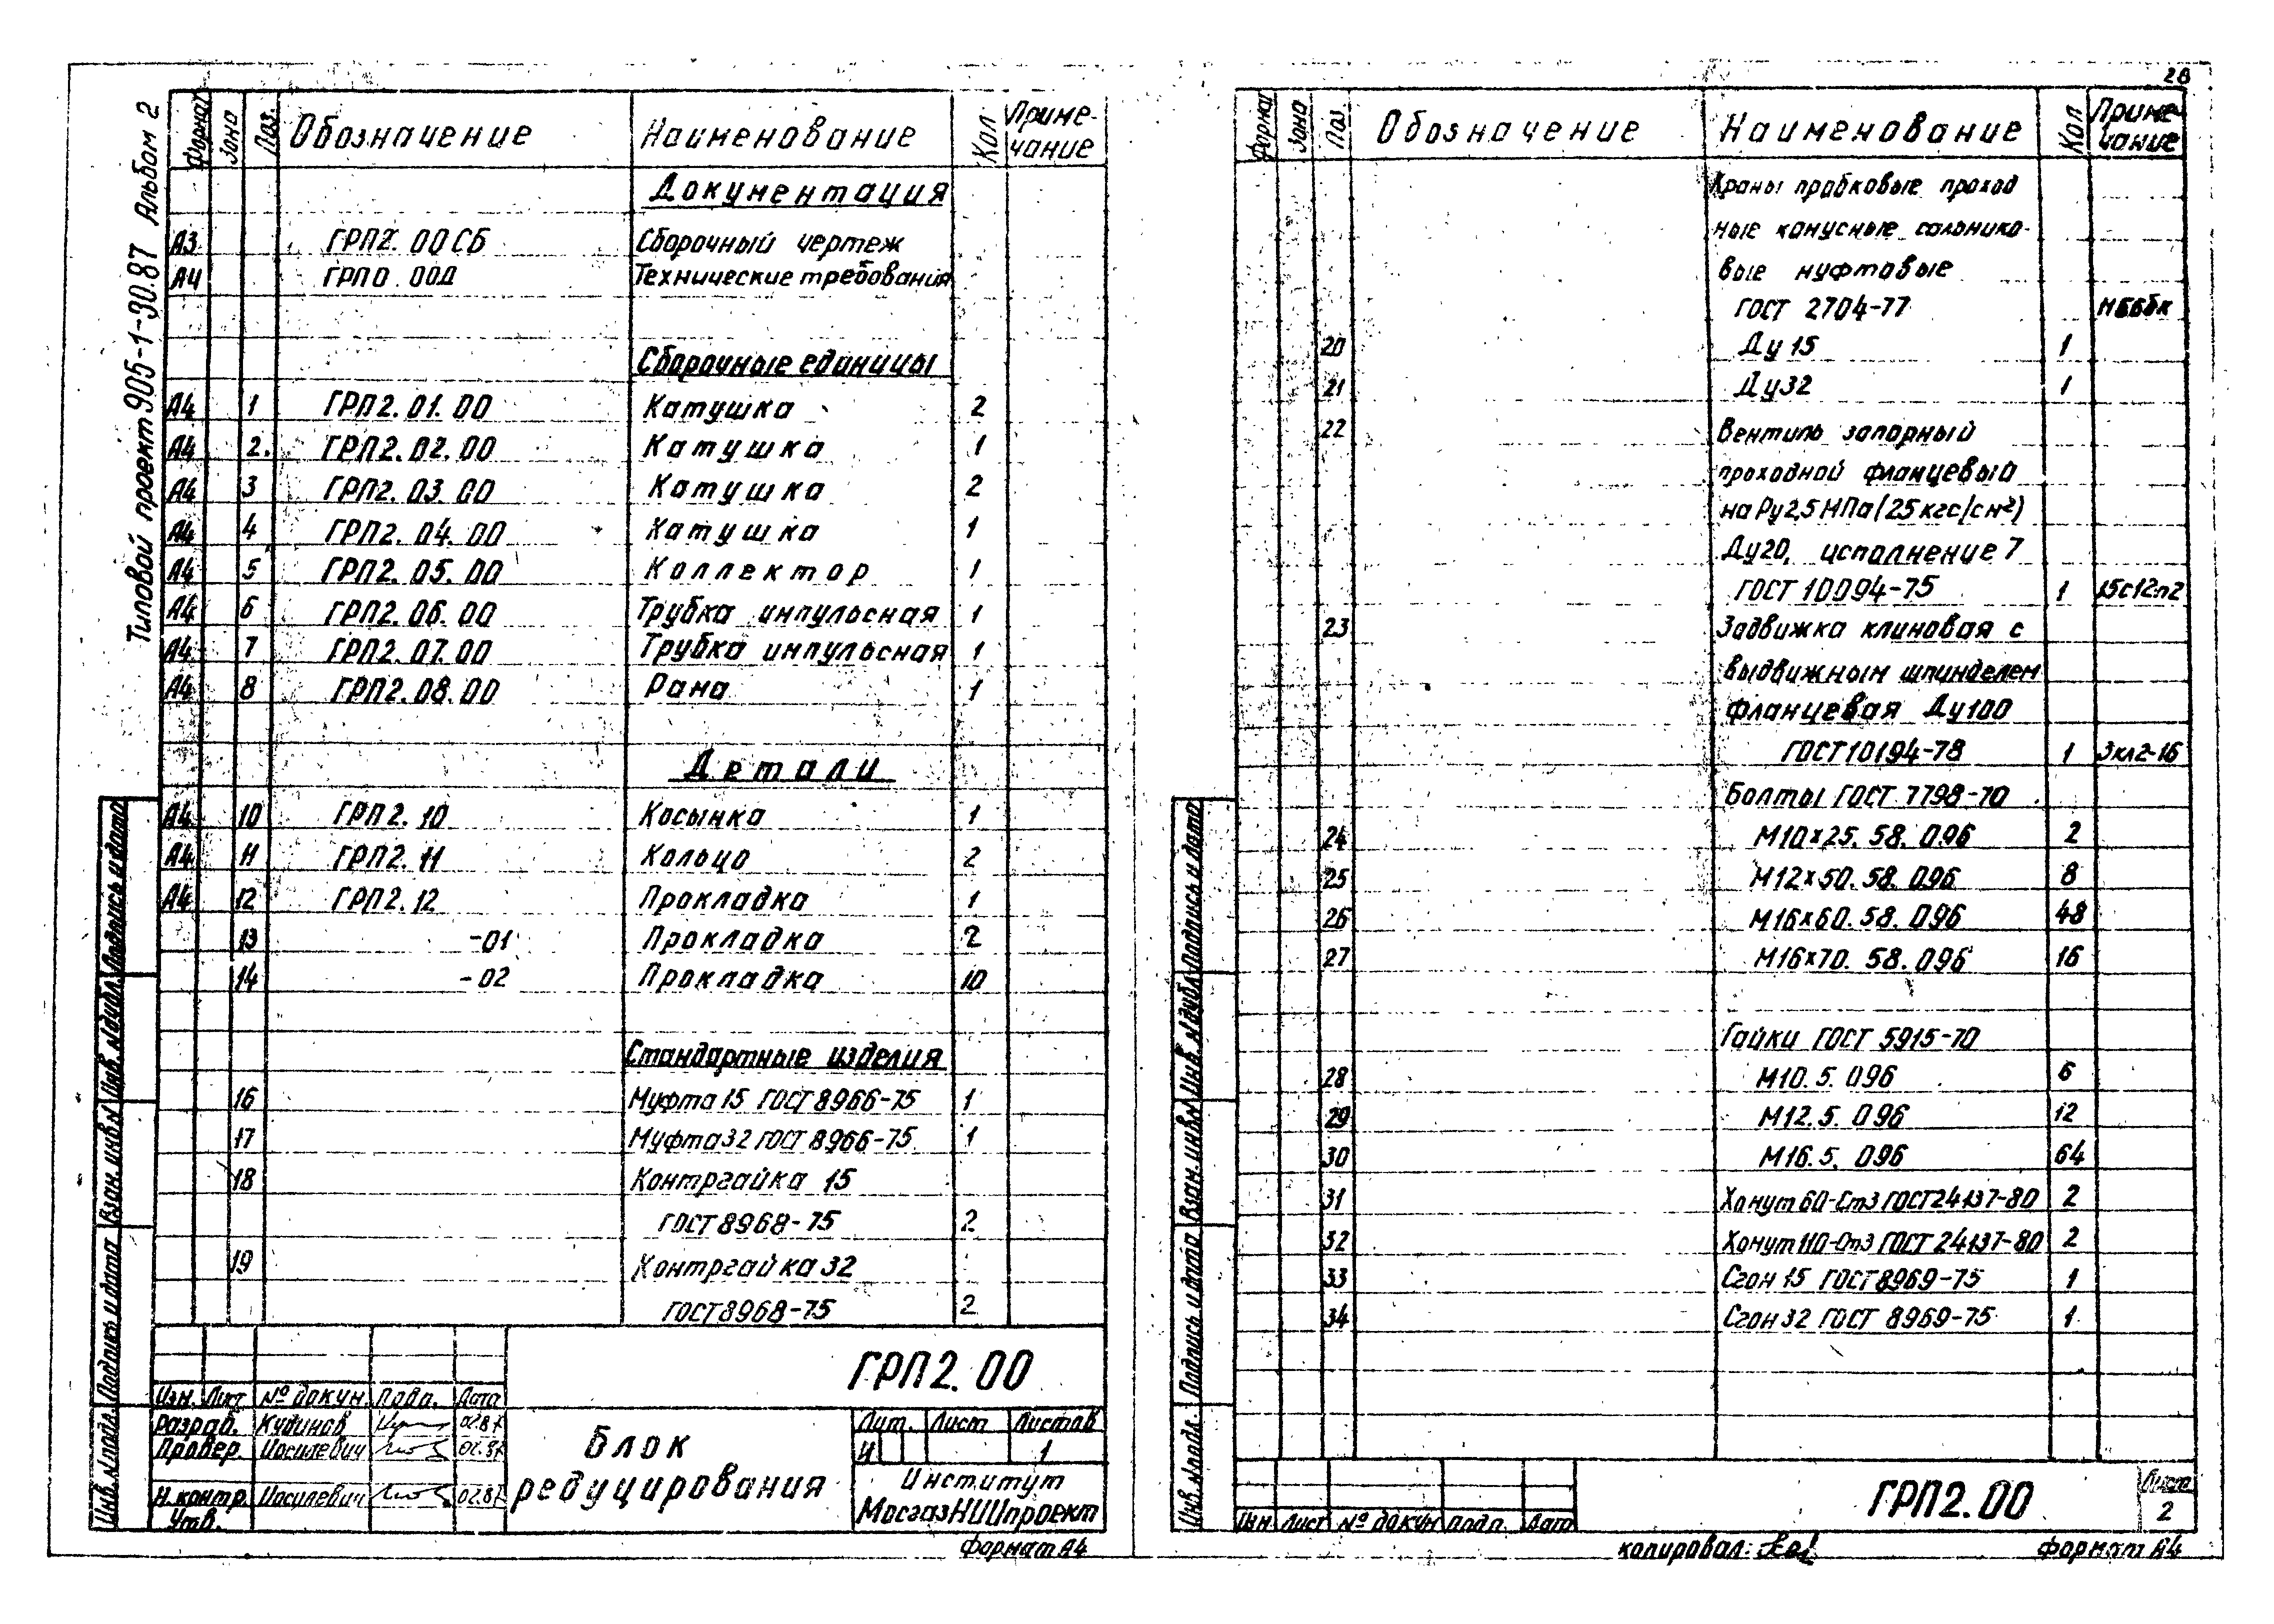 Типовой проект 905-1-30.87 Альбом 2
Формат Зона Поз. Обозначение Наименование Кол Приме-
чание
Документация
А3 ГРП2.00СБ Сборочный чертеж
А4 ГРП0.00Д Технические требования
Сборочные единицы
А4 1 ГРП2.01.00 Катушка 2
А4 2. ГРП2.02.00 Катушка 1
А4 3 ГРП2.03.00 Катушка 2
А4 4 ГРП2.04.00 Катушка 1
А4 5 ГРП2.05.00 Коллектор 1
А4 6 ГРП2.06.00 Трубка импульсная 1
А4 7 ГРП2.07.00 Трубка импульсная 1
А4 8 ГРП2.08.00 Рама 1
Детали
А4 10 ГРП2.10 Косынка 1
А4 11 ГРП2.11 Кольцо 2
А4 12 ГРП2.12 Прокладка 1
13 -01 Прокладка 2
14 -02 Прокладка 10
Стандартные изделия
16 Муфта 15 ГОСТ 8966-75 1
17 Муфта 32 ГОСТ 8966-75 1
18 Контргайка 15
ГОСТ 8968-75 2
19 Контргайка 32
ГОСТ 8968-75 2
Инв. № подл. Подпись и дата Взам. инв № Инв. № дубл. Подпись и дата
ГРП2.00
Изм. Лист № докум. Подп. Дата
Разраб. Кудинов 02.87
Провер. Иосилевич 02.87
Н.контр. Иосилевич 02.87
Утв.
Блок
редуцирования
Лит. Лист Листов
И 1
Институт
МосгазНИИпроект
Формат А4
28
Формат Зона Поз. Обозначение Наименование Кол Приме-
чание
Краны пробковые проход
ные конусные сальнико-
вые муфтовые
ГОСТ 2704-77 11Б6бк
20 Ду 15 1
21 Ду 32 1
22 Вентиль запорный
проходной фланцевый
на Ру 2,5 МПа (25 кгс/см²)
Ду20, исполнение 7
ГОСТ 10094-75 1 15с12п2
23 Задвижка клиновая с
выдвижным шпинделем
фланцевая Ду100
ГОСТ 10194-78 1 3кл2-16
Болты ГОСТ 7798-70
24 М10×25.58.096 2
25 М12×50.58.096 8
26 М16×60.58.096 48
27 М16×70.58.096 16
Гайки ГОСТ 5915-70
28 М10.5.096 6
29 М12.5.096 12
30 М16.5.096 64
31 Хомут 60-Ст3 ГОСТ 24137-80 2
32 Хомут 110-Ст3 ГОСТ 24137-80 2
33 Сгон 15 ГОСТ 8969-75 1
34 Сгон 32 ГОСТ 8969-75 1
Инв. № подл. Подпись и дата Взам. инв № Инв. № дубл. Подпись и дата
Изм Лист № докум Подп. Дата
ГРП2.00
Лист
2
копировал:
Формат А4